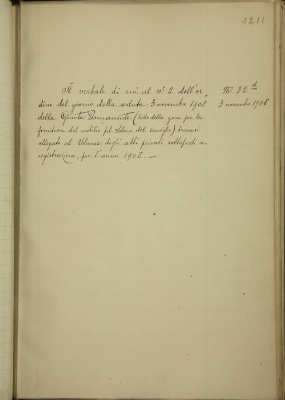 1211
Il verbale di cui al nº 2 dell'or-
dine del giorno della seduta 3 novembre 1908
della Giunta Permanente (esito della gara per la
fornitura del mobilio pel salone del Consiglio) trovasi
allegato al Volume degli atti privati sottoposti a
registrazione, per l'anno 1908. —
Nº. 32 d
3 novembre 1908